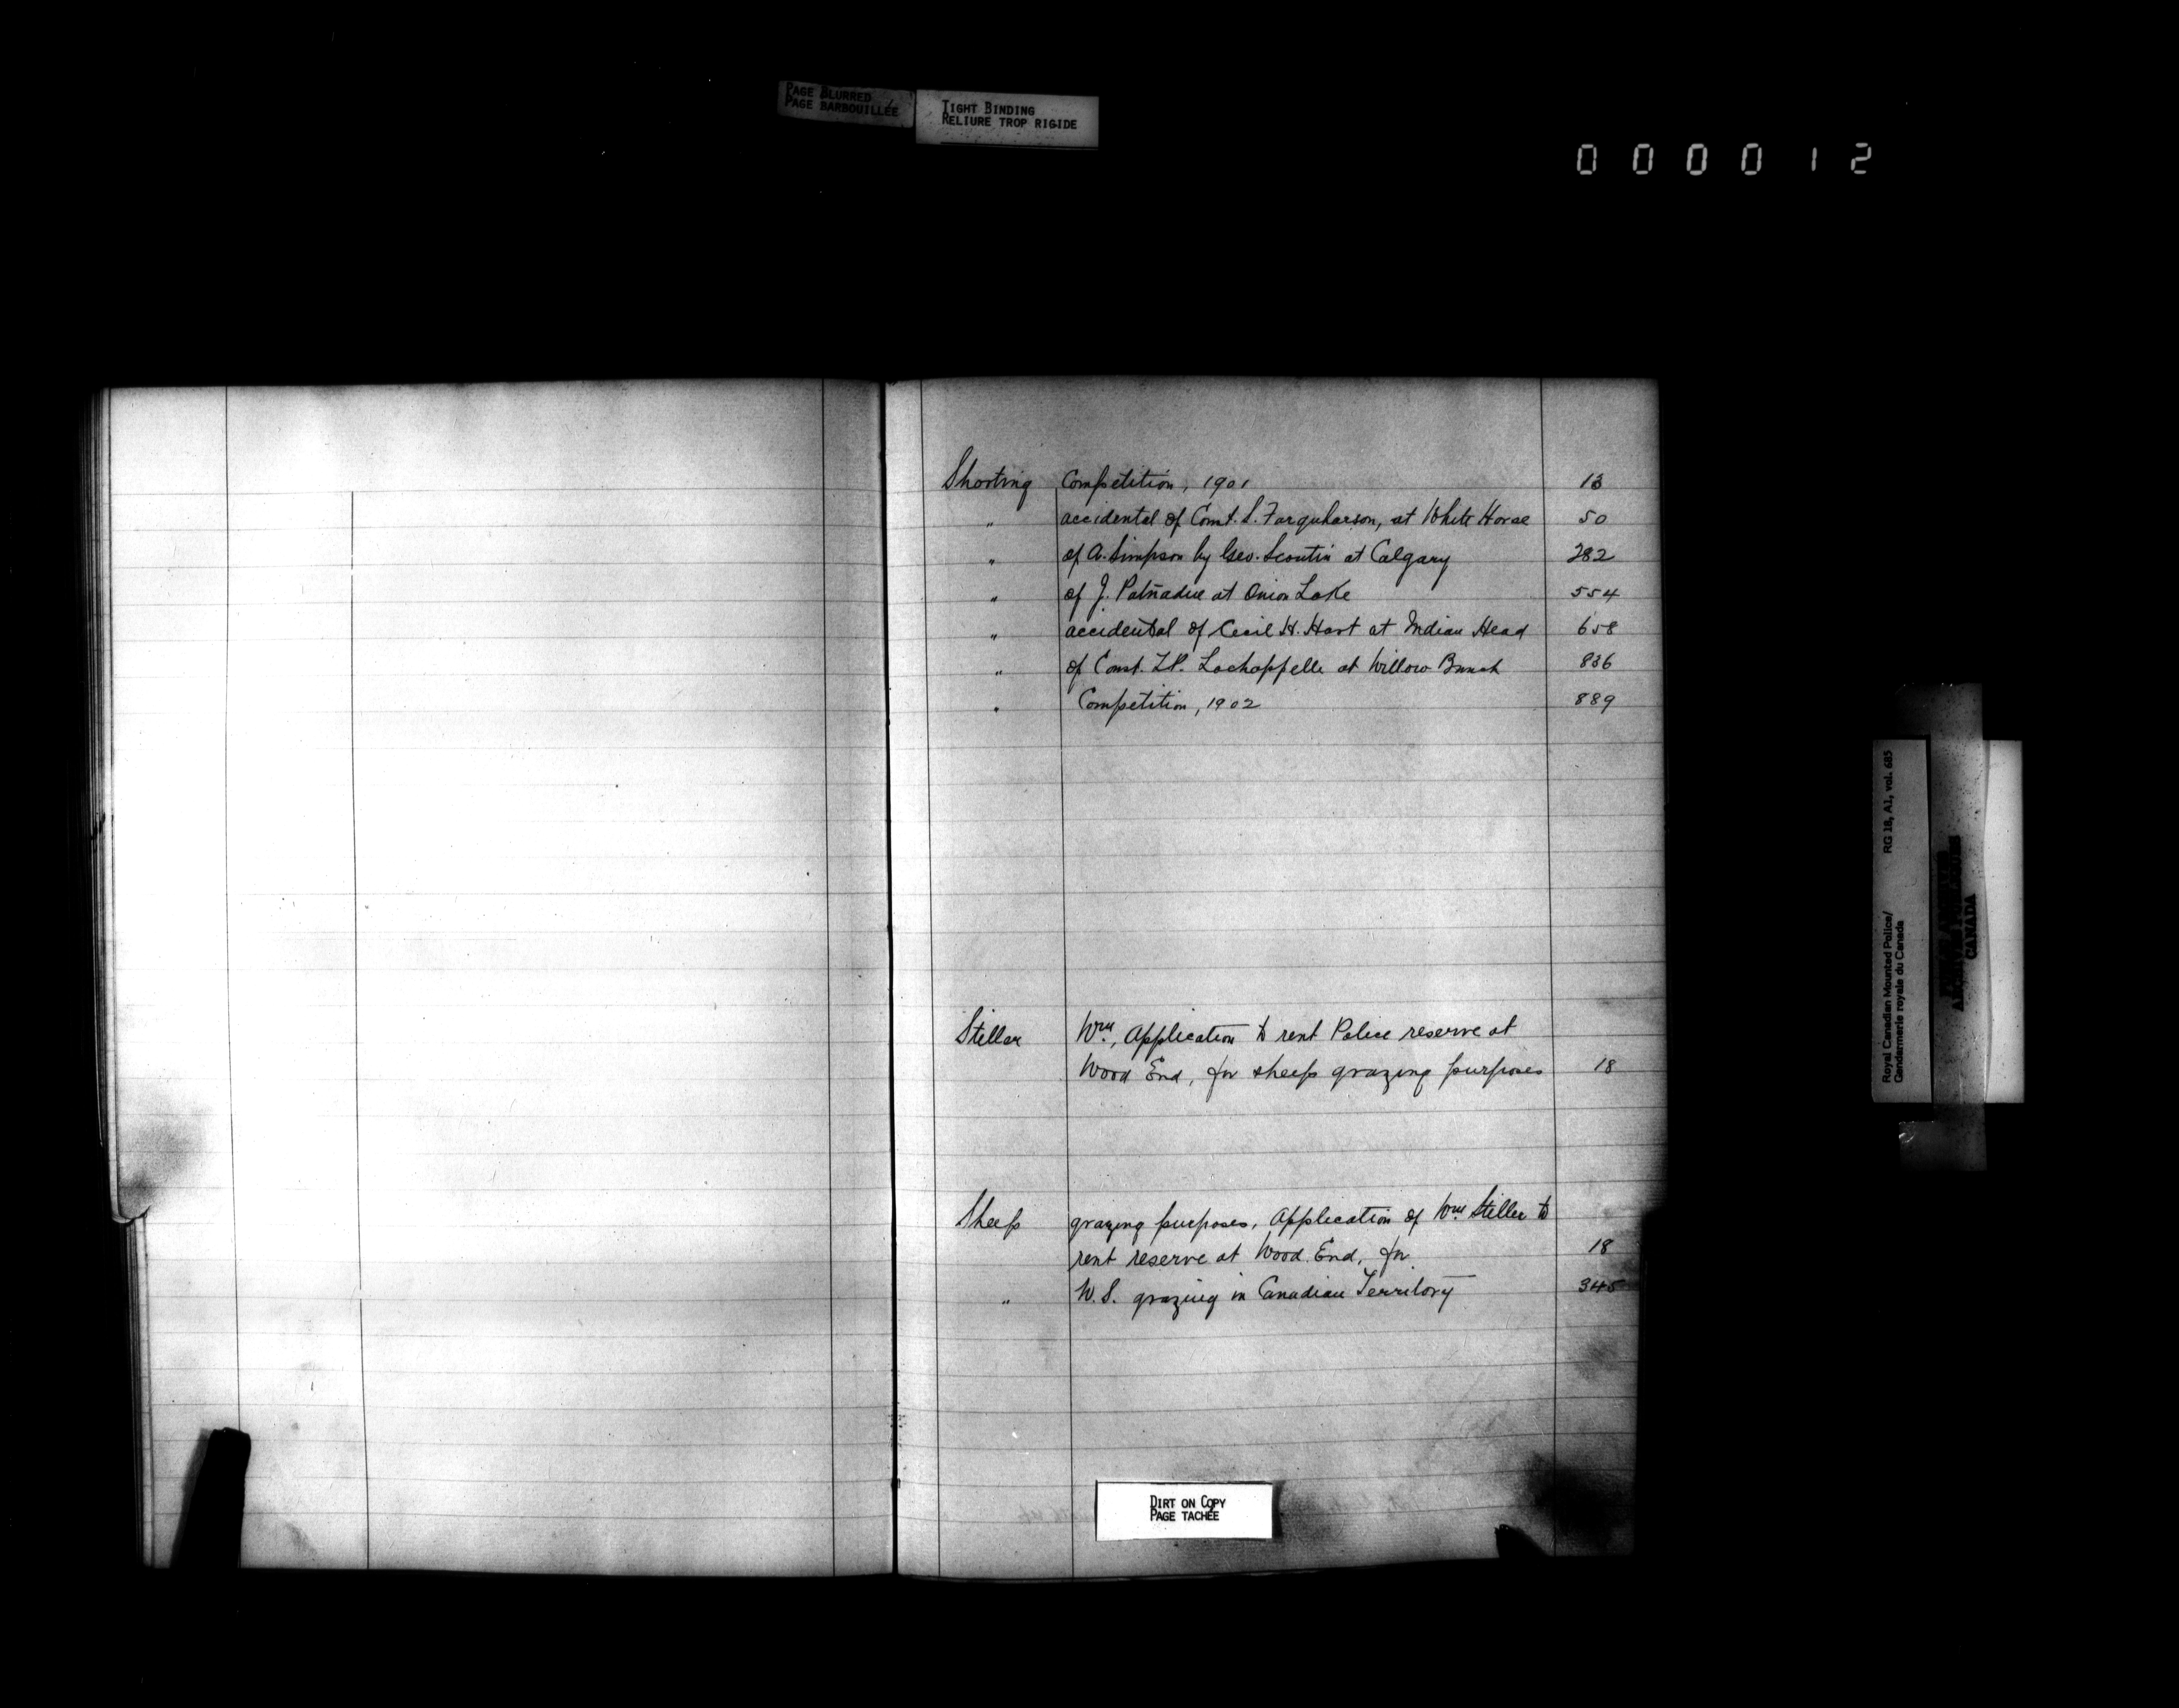 PAGE BLURRED
PAGE BARBOUILLÉE
TIGHT BINDING
RELIURE TROP RIGIDE
000012
Shooting Competition, 1901 13
" accidental of Const. S. Farquharson, at White Horse 50
" of A. Simpson by Geo. at Calgary 282
" of J. at Onion Lake 554
" accidental of Cecil H. Hart at Indian Head 658
" of Const. Lachappelle at Willow Bunch 836
" Competition, 1902 889
Stellar Wm., Application to rent Police reserve at
Wood End, for sheep grazing purposes 18
Sheep grazing purposes, Application of Wm. Steller to
rent reserve at Wood End, for 18
" U.S. grazing in Canadian Territory 345
DIRT ON COPY
PAGE TACHÉE
Royal Canadian Mounted Police/ RG 18, A1, vol. 685
Gendarmerie royale du Canada
CANADA